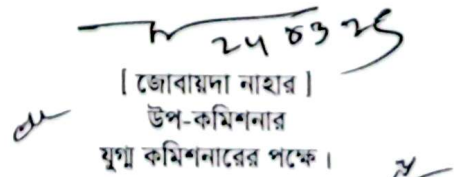 [ জোবায়দা নাহার ]
উপ-কমিশনার
যুগ্ম কমিশনারের পক্ষে।